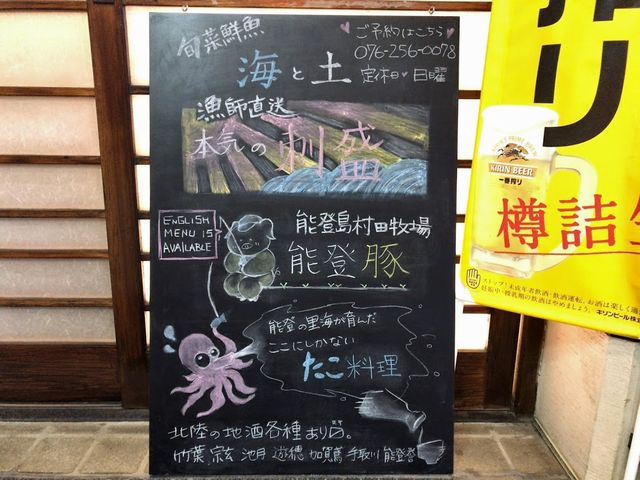 旬菜鮮魚
海と土
ご予約はこちら
076-256-0078
定休 日曜
漁師直送
本気の刺盛
ENGLISH
MENU IS
AVAILABLE
能登島村田牧場
能登豚
能登の里海が育んだ
ここにしかない
たこ料理
北陸の地酒各種あり〼。
竹葉 宗玄 池月 遊穂 加賀鳶 手取川 能登誉
リ
KIRIN BEER
一番搾り
樽詰生
ストップ!未成年者飲酒・飲酒運転。お酒は楽しく適
妊娠中・授乳期の飲酒はやめましょう。
キリンビール株式